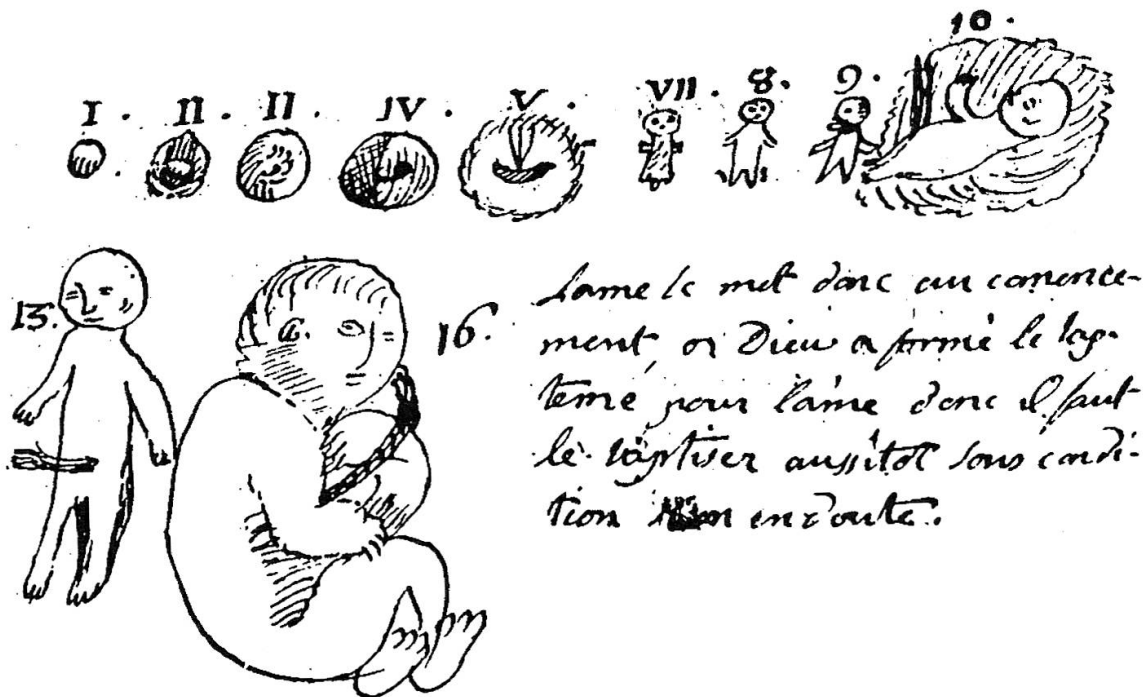 10.
I. II. II. IV. V. VII. 8. 9.
13. 16.
Lame se met donc au comence-
ment, or Dieu a formé le bap-
teme pour l'ame donc il faut
le baptiser aussitôt sous condi-
tion en doute.